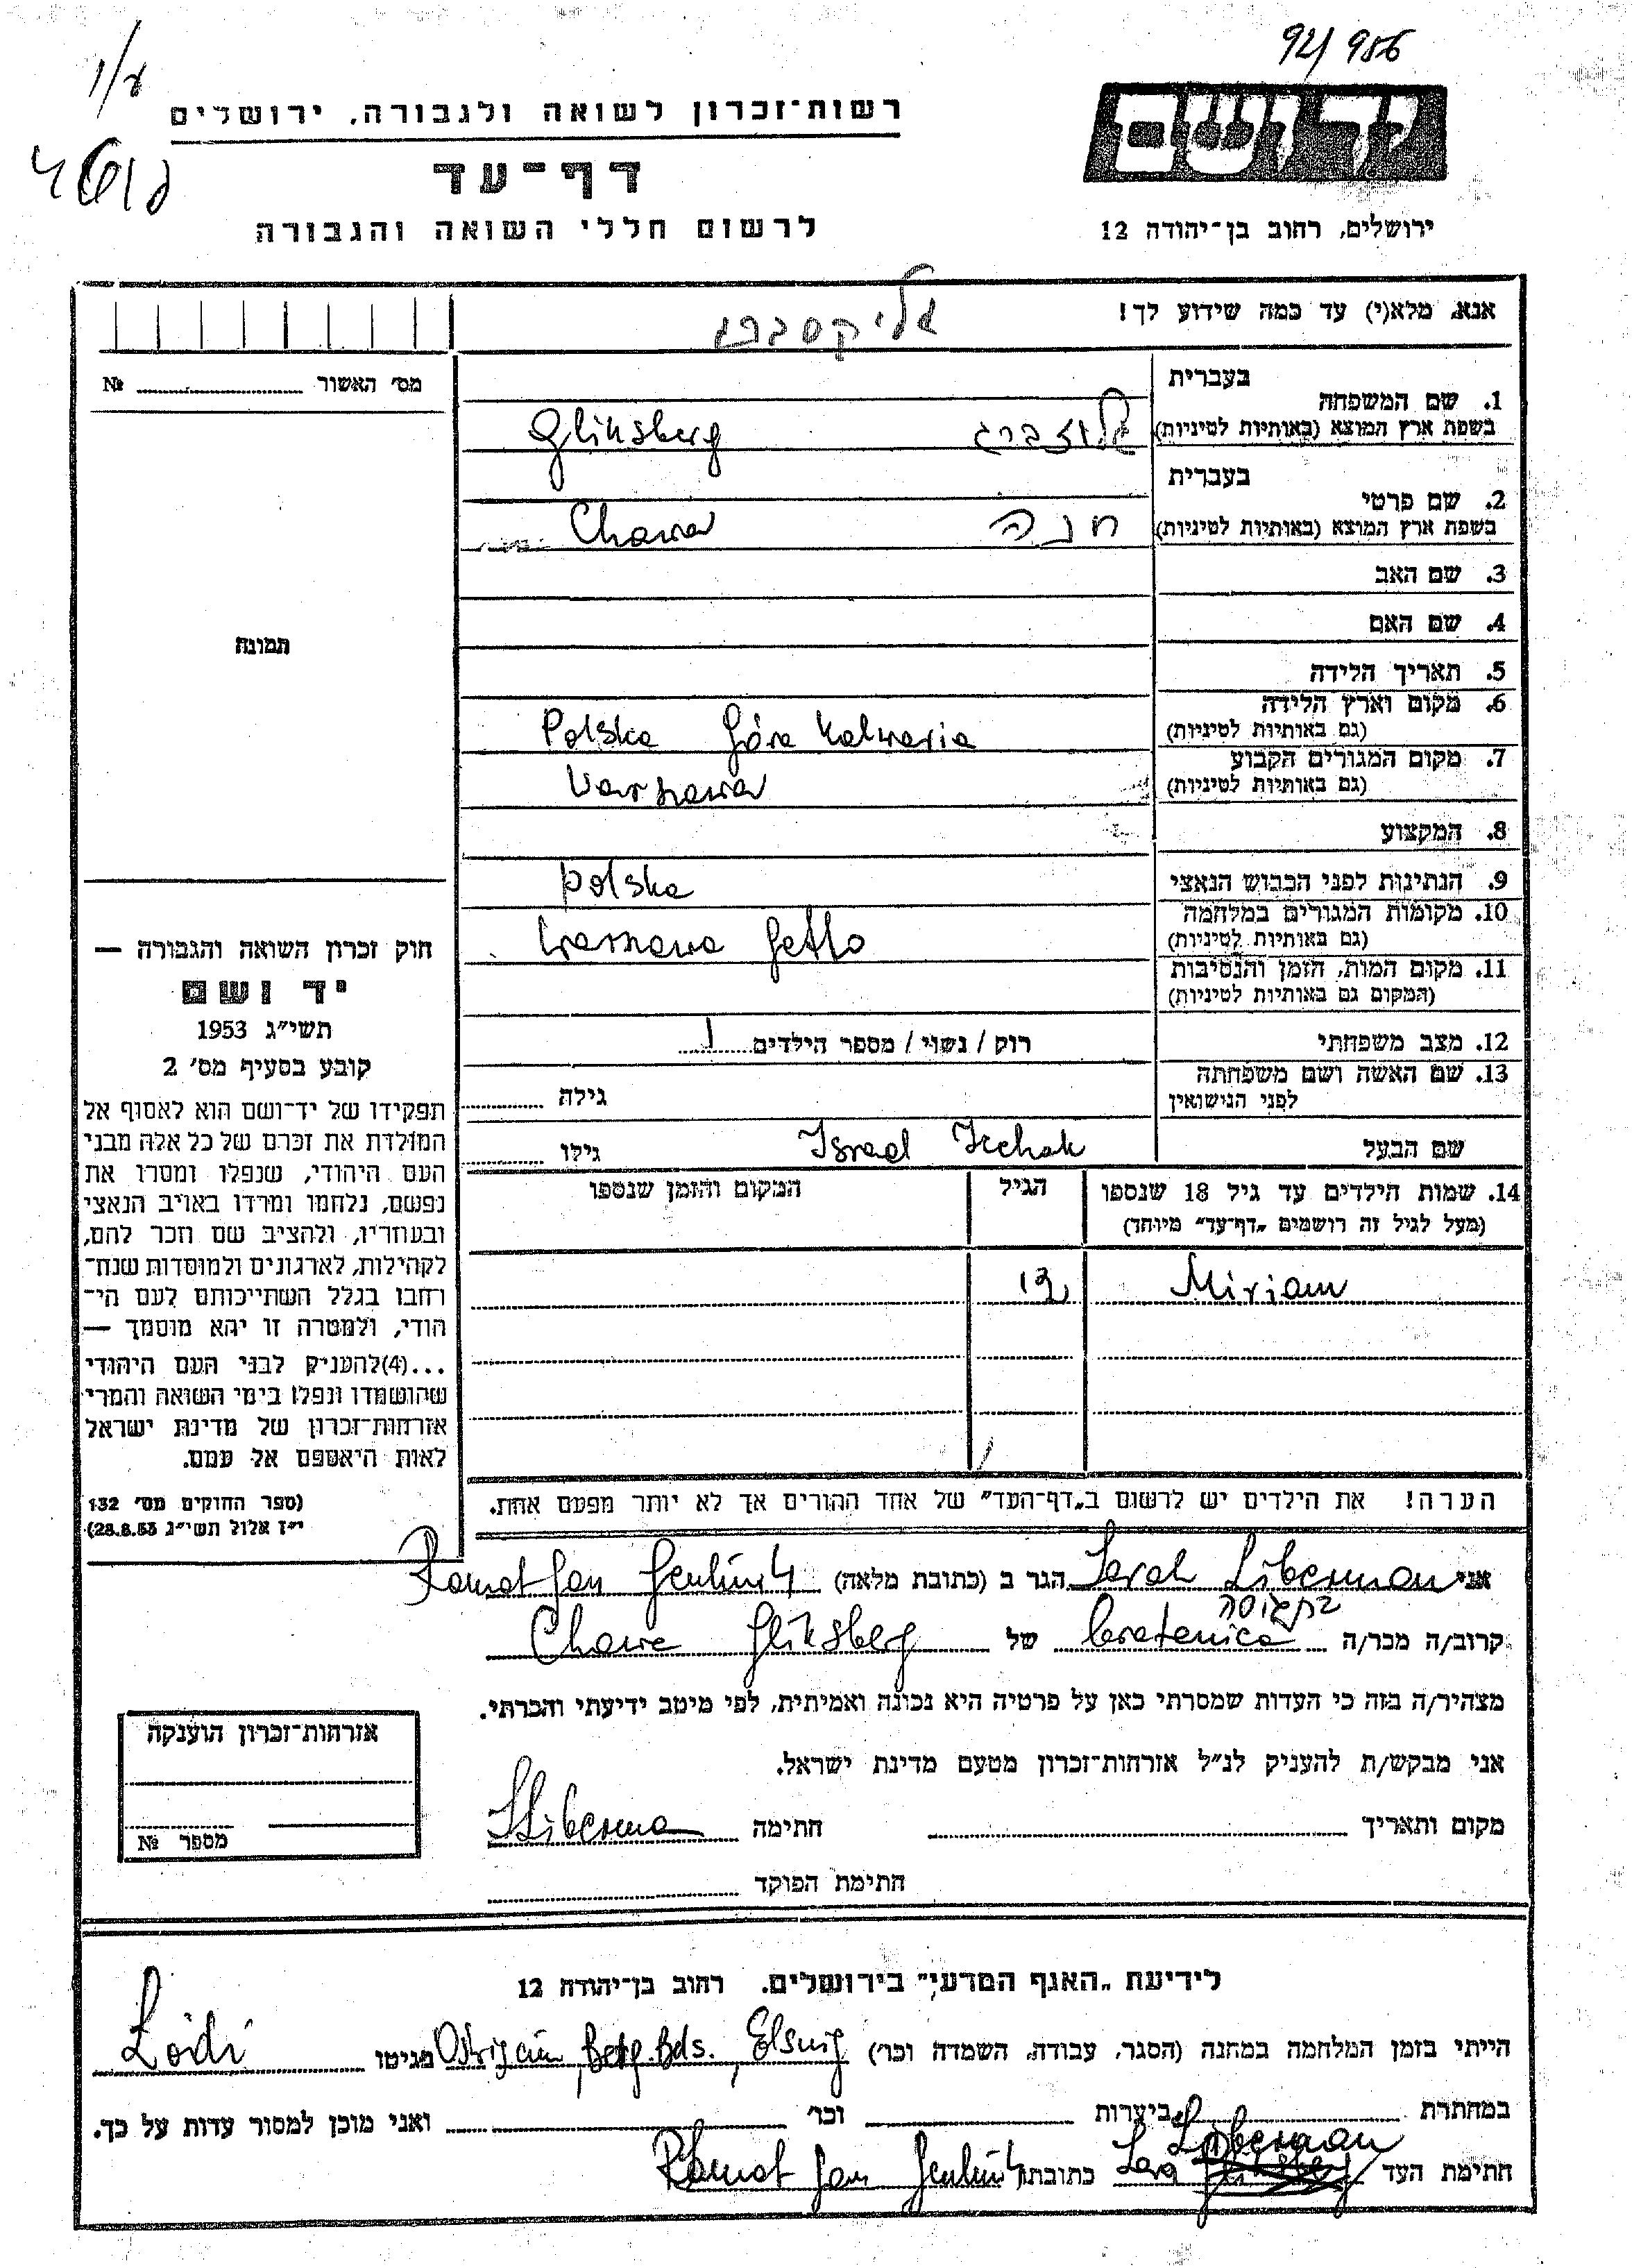 92/956
רשות־זכרון לשואה ולגבורה, ירושלים
דף־עד
לרשום חללי השואה והגבורה
ידושם
ירושלים, רחוב בן־יהודה 12
אנא, מלא(י) עד כמה שידוע לך!
גליקסברג
מס׳ האשור № ........
1. שם המשפחה
בעברית
בשפת ארץ המוצא (באותיות לטיניות)
Gliksberg
2. שם פרטי
בעברית
בשפת ארץ המוצא (באותיות לטיניות)
חנה Chawa
3. שם האב
4. שם האם
5. תאריך הלידה
6. מקום וארץ הלידה
(גם באותיות לטיניות)
Polska Góra Kalwaria
7. מקום המגורים הקבוע
(גם באותיות לטיניות)
Warszawa
8. המקצוע
9. הנתינות לפני הכבוש הנאצי
polska
10. מקומות המגורים במלחמה
(גם באותיות לטיניות)
Warszawa Getto
11. מקום המות, הזמן והנסיבות
(המקום גם באותיות לטיניות)
12. מצב משפחתי
רוק / נשוי / מספר הילדים 1
13. שם האשה ושם משפחתה
לפני הנישואין
גילה ........
שם הבעל Israel Icchak גילו ........
14. שמות הילדים עד גיל 18 שנספו הגיל המקום והזמן שנספו
(מעל לגיל זה רושמים „דף־עד״ מיוחד)
Miriam 12
הערה! את הילדים יש לרשום ב„דף־העד״ של אחד ההורים אך לא יותר מפעם אחת.
תמונה
חוק זכרון השואה והגבורה —
יד ושם
תשי״ג 1953
קובע בסעיף מס׳ 2
תפקידו של יד־ושם הוא לאסוף אל
המולדת את זכרם של כל אלה מבני
העם היהודי, שנפלו ומסרו את
נפשם, נלחמו ומרדו באויב הנאצי
ובעוזריו, ולהציב שם וזכר להם,
לקהילות, לארגונים ולמוסדות שנח־
רחבו בגלל השתייכותם לעם הי־
הודי, ולמטרה זו יהא מוסמך —
...(4)להעניק לבני העם היהודי
שהושמדו ונפלו בימי השואה והמרי
אזרחות־זכרון של מדינת ישראל
לאות היאספם אל עמם.
(ספר החוקים מס׳ 132
י״ז אלול תשי״ג 28.8.53)
אני Sarah Liberman הגר ב (כתובת מלאה) Ramat Gan
בת גיסה
קרוב/ה מכר/ה bratanica של Chawe Gliksberg
מצהיר/ה בזה כי העדות שמסרתי כאן על פרטיה היא נכונה ואמיתית, לפי מיטב ידיעתי והכרתי.
אני מבקש/ת להעניק לנ״ל אזרחות־זכרון מטעם מדינת ישראל.
מקום ותאריך ........ חתימה SLiberma
חתימת הפוקד ........
אזרחות־זכרון הוענקה
מספר №
לידיעת „האגף המדעי״ בירושלים. רחוב בן־יהודה 12
הייתי בזמן המלחמה במחנה (הסגר, עבודה, השמדה וכר׳) Berg. Bels., Elsnig מגיטו Łódź
במחתרת ........ ביערות ........ וכר׳ ........ ואני מוכן למסור עדות על כך.
חתימת העד Sara Liberman כתובתו Ramat Gan